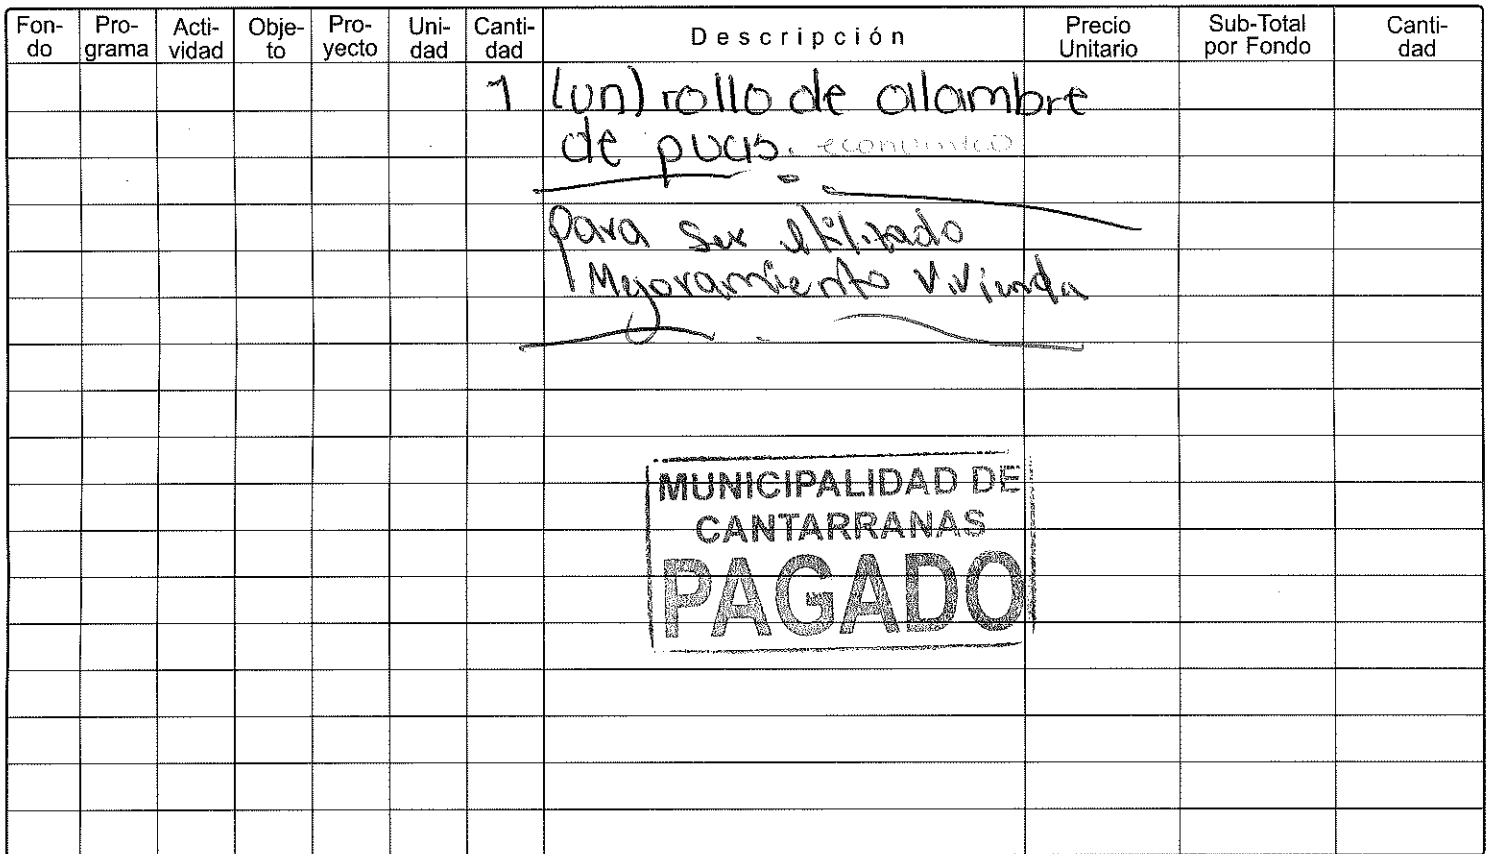 Fon-do Pro-grama Acti-vidad Obje-to Pro-yecto Uni-dad Canti-dad Descripción Precio Unitario Sub-Total por Fondo Canti-dad
1 (un) rollo de alambre
de puas. economico
para ser utilizado
Mejoramiento Vivienda
MUNICIPALIDAD DE
CANTARRANAS
PAGADO